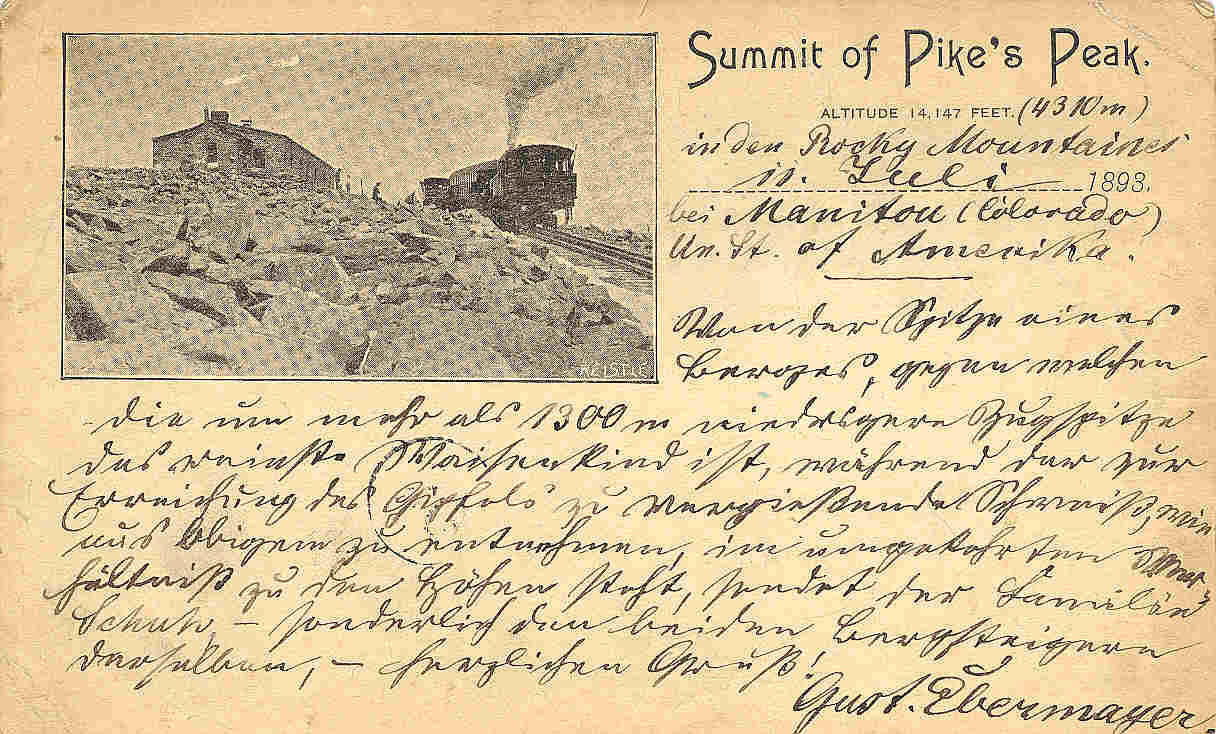 Summit of Pike's Peak.
ALTITUDE 14,147 FEET. (4310 m)
in den Rocky Mountaines
11. Juli 1893.
bei Manitou (Colorado)
Un. St. of Amerika.
REISTLE
Von der Spitze eines
Berges, gegen welchen
die um mehr als 1300 m niedrigere Zugspitze
das reinste Waisenkind ist, während der zur
Erreichung des Gipfels zu vergießende Schweiß, wie
aus Obigem zu entnehmen, im umgekehrten Ver-
hältniß zu den Höhen steht, sendet der Familie
Schuh, – sonderlich den beiden Bergsteigern
derselben, – herzlichen Gruß!
Gust. Ebermayer.